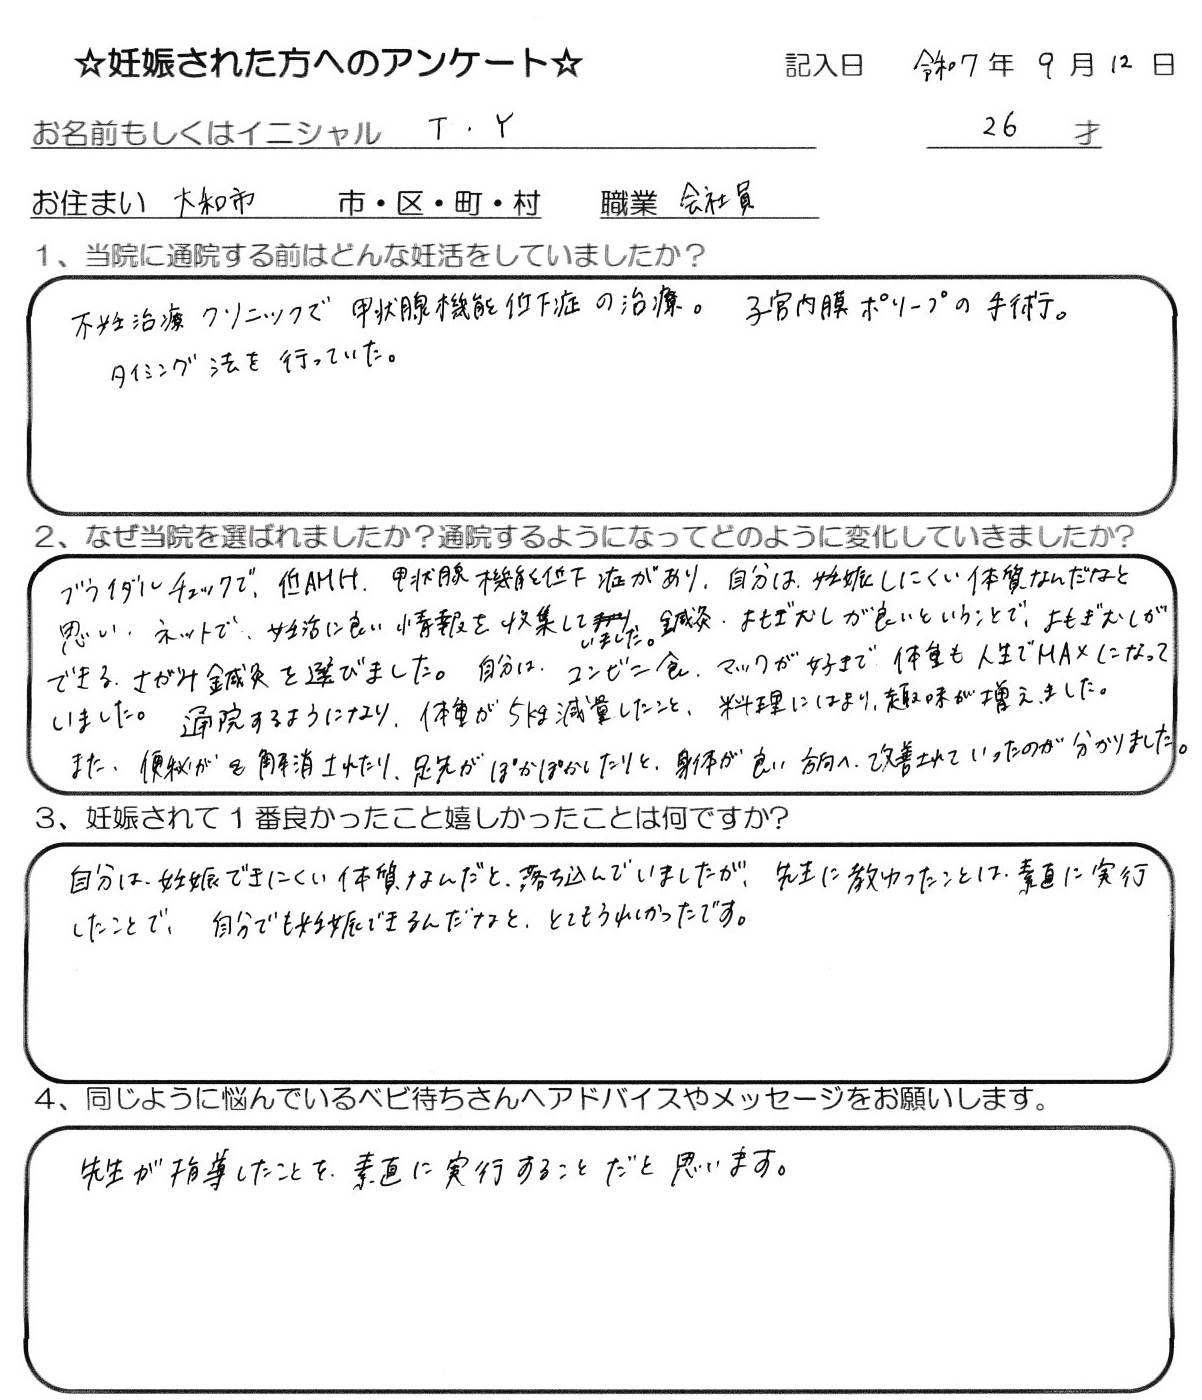 ☆妊娠された方へのアンケート☆ 記入日 令和7年 9月12日
お名前もしくはイニシャル T・Y 26才
お住まい 大和市 市・区・町・村 職業 会社員
1、当院に通院する前はどんな妊活をしていましたか？
不妊治療クリニックで 甲状腺機能低下症の治療。 子宮内膜ポリープの手術。
タイミング法を行っていた。
2、なぜ当院を選ばれましたか？通院するようになってどのように変化していきましたか?
ブライダルチェックで、低AMH、甲状腺機能低下症があり、自分は、妊娠しにくい体質なんだなと
思い、ネットで、妊活に良い情報を収集していました。鍼灸・よもぎむしが良いということで、よもぎむしが
できる、さがみ鍼灸を選びました。 自分は、コンビニ食、マックが好きで 体重も人生でMAXになって
いました。 通院するようになり、体重が5kg減量したこと、料理にはまり、趣味が増えました。
また、便秘がを解消されたり、足先がぽかぽかしたりと、身体が良い方向へ、改善されていったのが分かりました。
3、妊娠されて1番良かったこと嬉しかったことは何ですか?
自分は、妊娠できにくい体質なんだと、落ち込んでいましたが、先生に教わったことは、素直に実行
したことで、 自分でも妊娠できるんだなと、とてもうれしかったです。
4、同じように悩んでいるベビ待ちさんへアドバイスやメッセージをお願いします。
先生が指導したことを、素直に実行することだと思います。